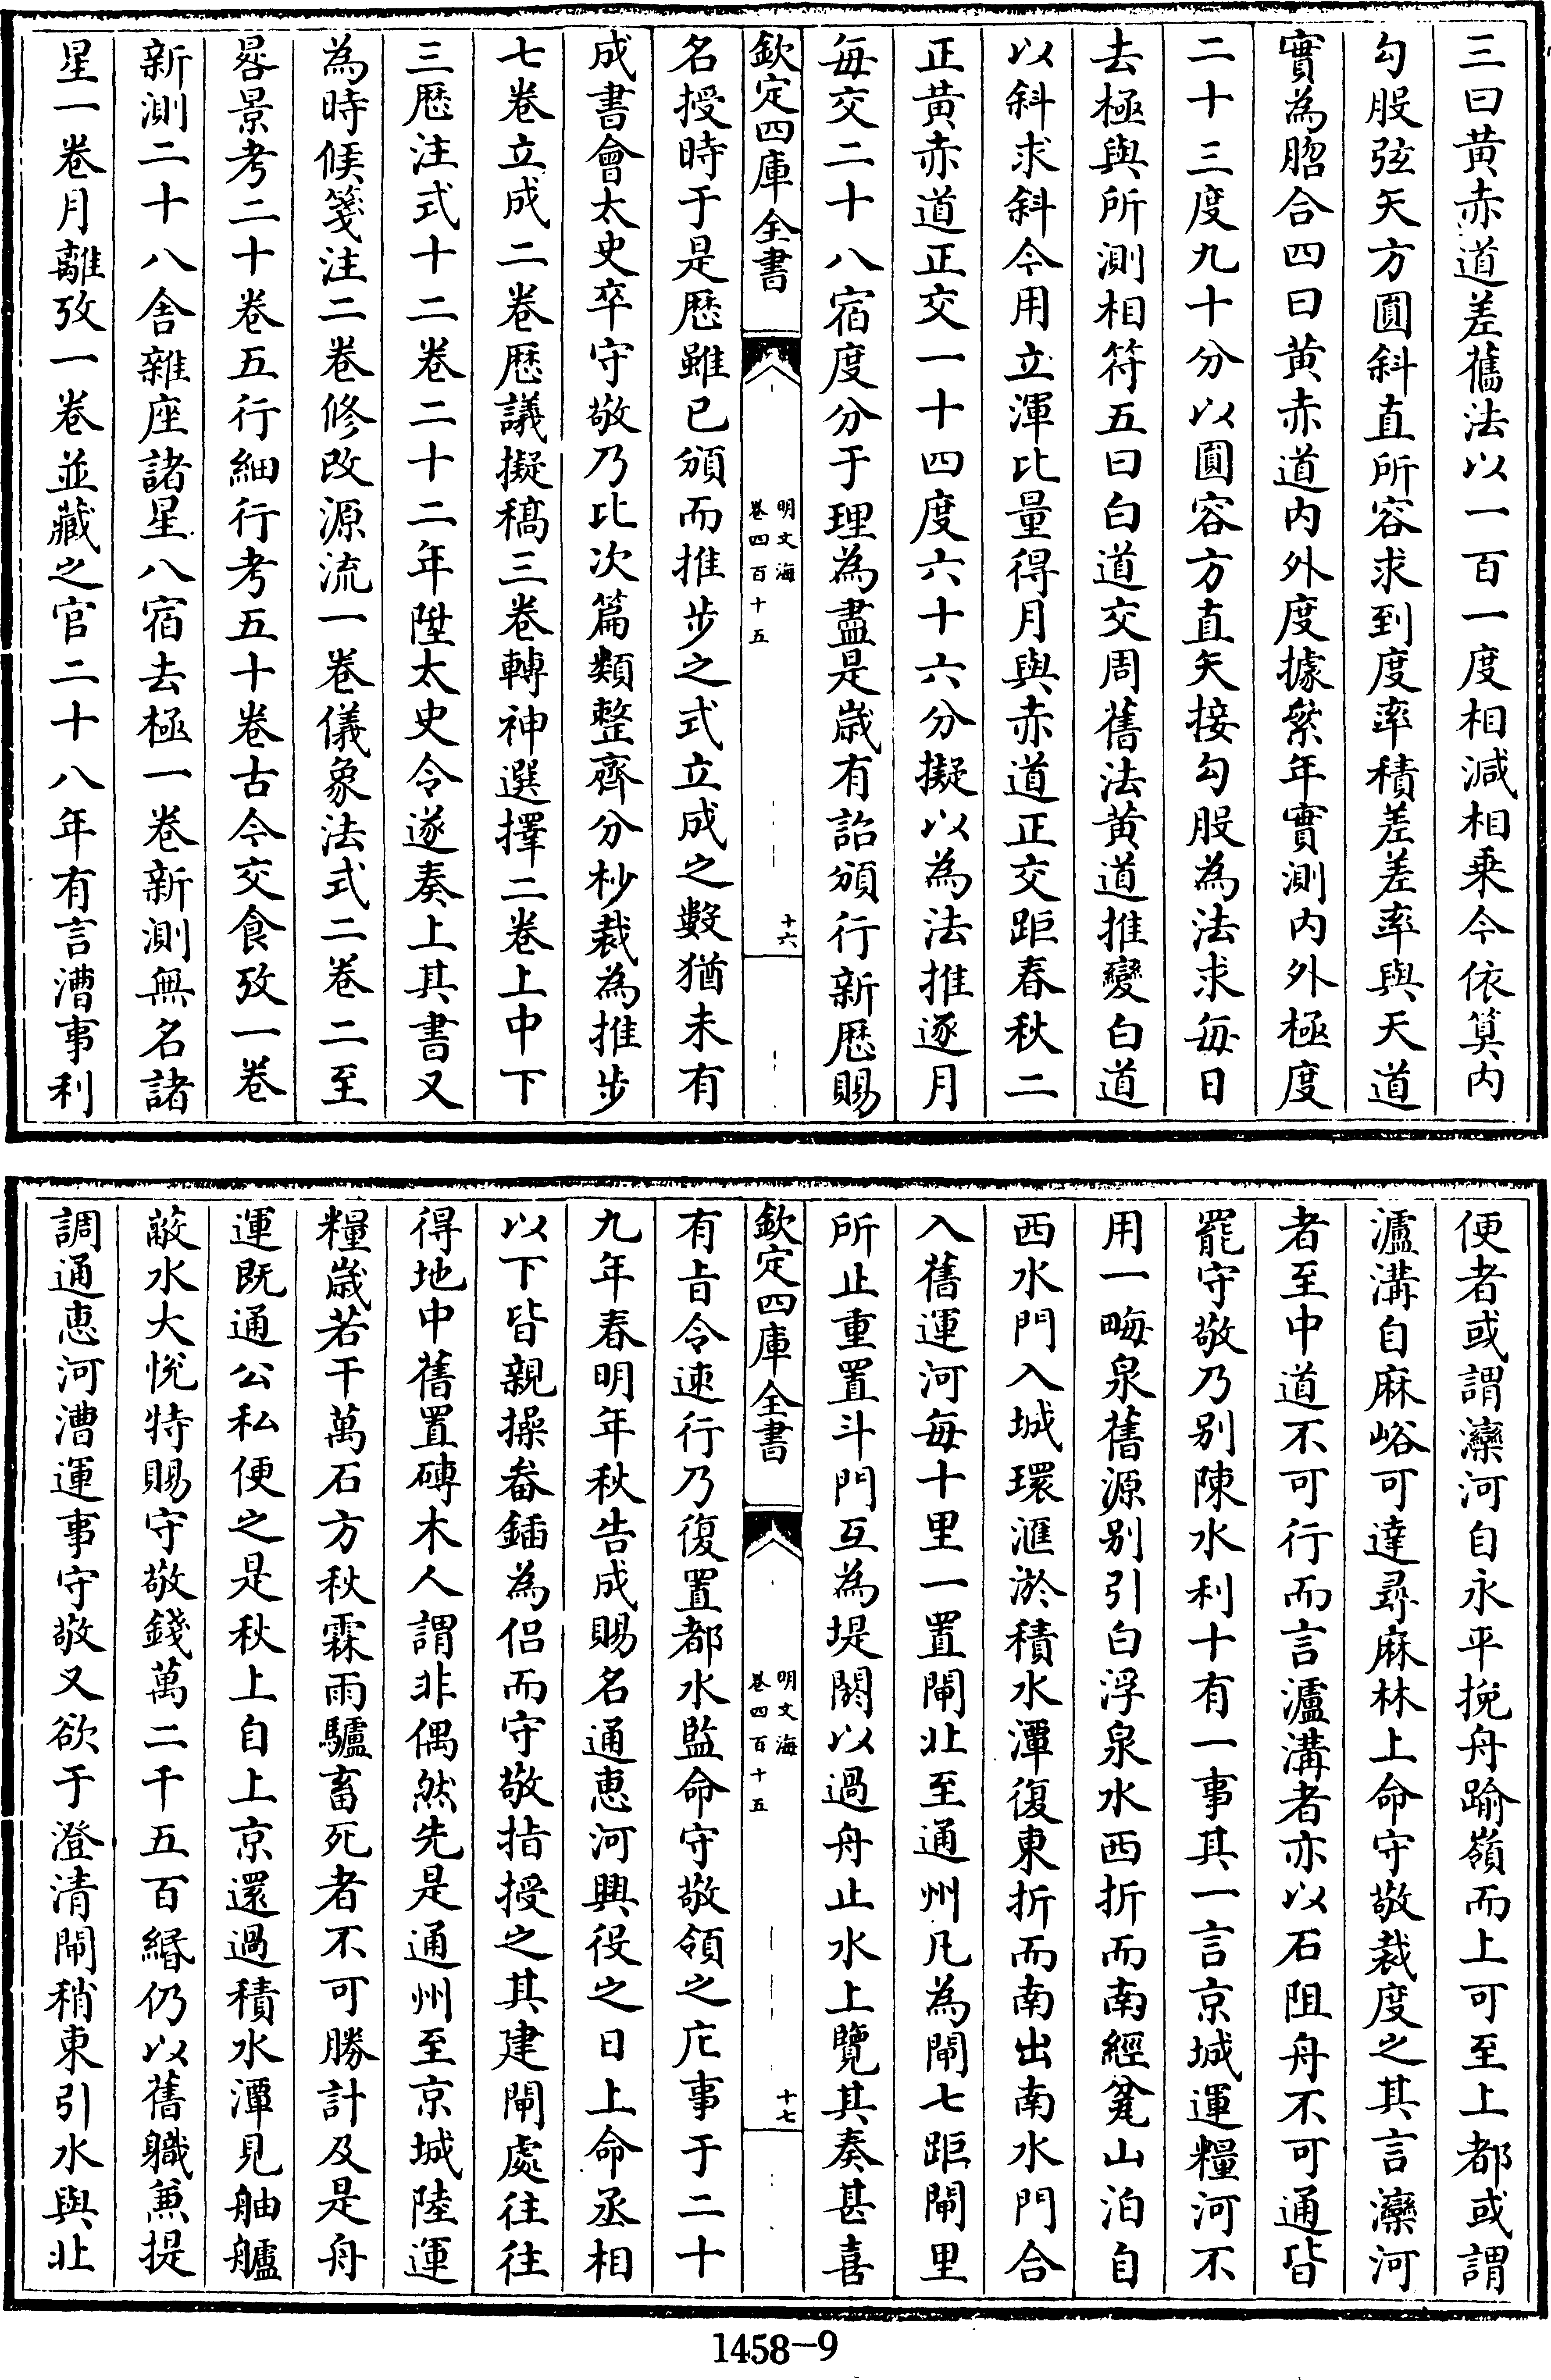 三曰黄赤道差舊法以一百一度相減相乗今依算内
勾股弦矢方圓斜直所容求到度率積差差率與天道
實為脗合四曰黄赤道内外度據絫年實測内外極度
二十三度九十分以圓容方直矢接勾股為法求毎日
去極與所測相符五曰白道交周舊法黄道推變白道
以斜求斜今用立渾比量得月與赤道正交距春秋二
正黄赤道正交一十四度六十六分擬以為法推逐月
毎交二十八宿度分于理為盡是嵗有詔頒行新厯賜
欽定四庫全書
明文海
卷四百十五
十六
名授時于是厯雖已頒而推步之式立成之數猶未有
成書會太史卒守敬乃比次篇類整齊分杪裁為推步
七卷立成二卷厯議擬稿三卷轉神選擇二卷上中下
三厯注式十二卷二十二年陞太史令遂奏上其書又
為時候箋注二卷修改源流一卷儀象法式二卷二至
晷景考二十卷五行細行考五十卷古今交食攷一卷
新測二十八舍雜座諸星八宿去極一卷新測無名諸
星一卷月離攷一卷並藏之官二十八年有言漕事利
便者或謂灤河自永平挽舟踰嶺而上可至上都或謂
瀘溝自麻峪可達尋麻林上命守敬裁度之其言灤河
者至中道不可行而言瀘溝者亦以石阻舟不可通皆
罷守敬乃别陳水利十有一事其一言京城運糧河不
用一畮泉舊源别引白浮泉水西折而南經瓮山泊自
西水門入城環滙於積水潭復東折而南出南水門合
入舊運河毎十里一置閘北至通州凡為閘七距閘里
所止重置斗門互為堤閼以過舟止水上覽其奏甚喜
欽定四庫全書
明文海
卷四百十五
十七
有㫖令速行乃復置都水監命守敬領之庀事于二十
九年春明年秋告成賜名通惠河興役之日上命丞相
以下皆親操畚鍤為侣而守敬指授之其建閘處往往
得地中舊置磚木人謂非偶然先是通州至京城陸運
糧嵗若干萬石方秋霖雨驢畜死者不可勝計及是舟
運既通公私便之是秋上自上京還過積水潭見舳艫
蔽水大悦特賜守敬錢萬二千五百緡仍以舊職兼提
調通惠河漕運事守敬又欲于澄清閘稍東引水與北
1458-9